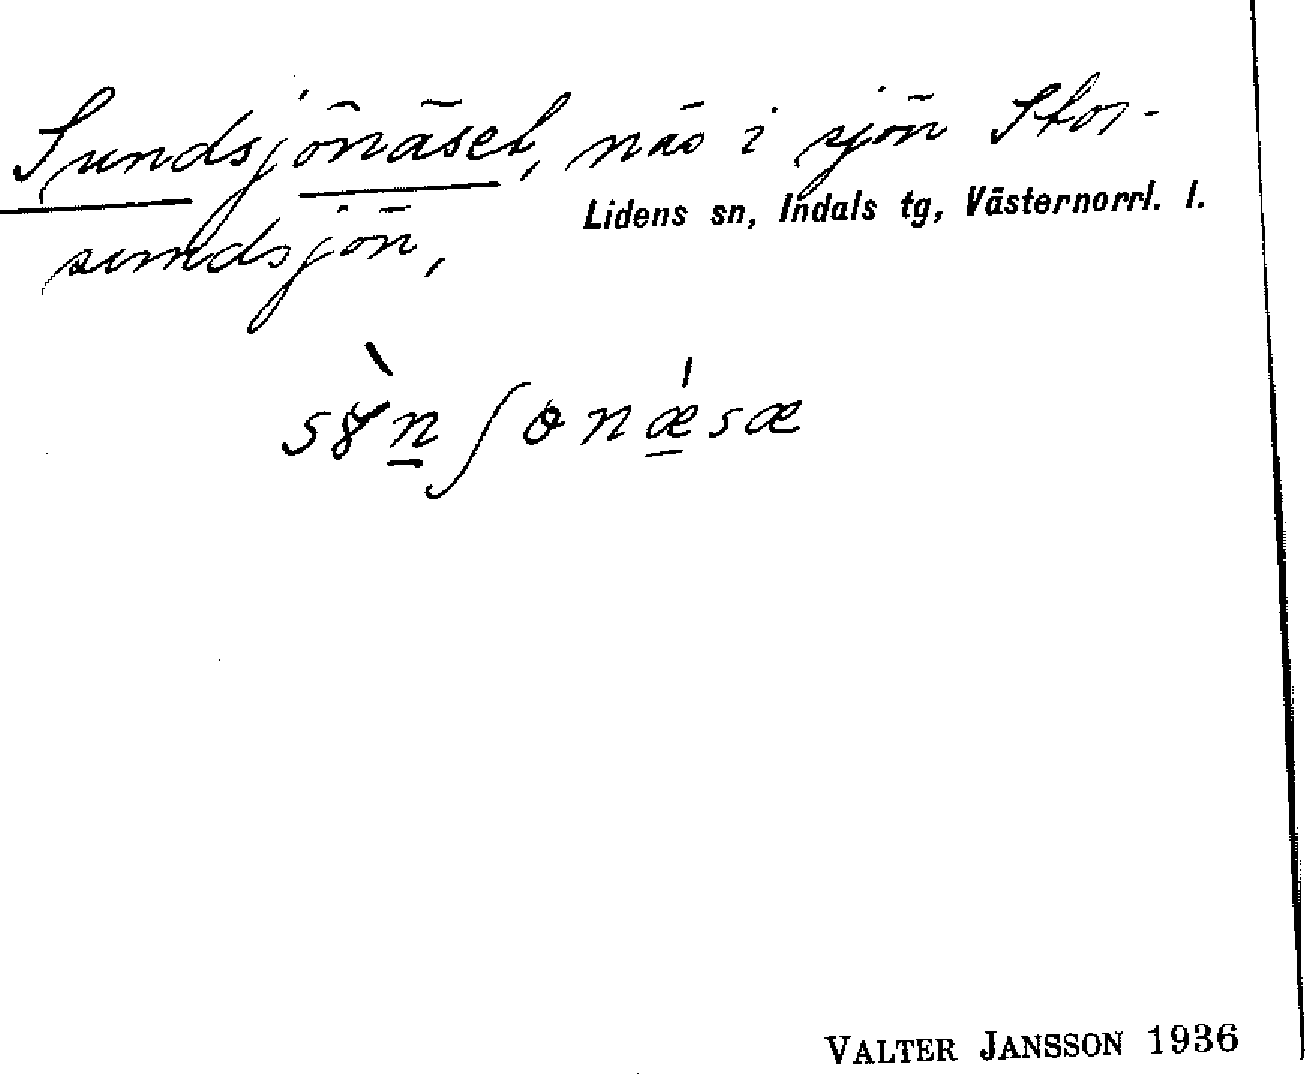 Sundsjönäset, näs i sjön Stor-
Lidens sn, Indals tg, Västernorrl. l.
sundsjön,
VALTER JANSSON 1936